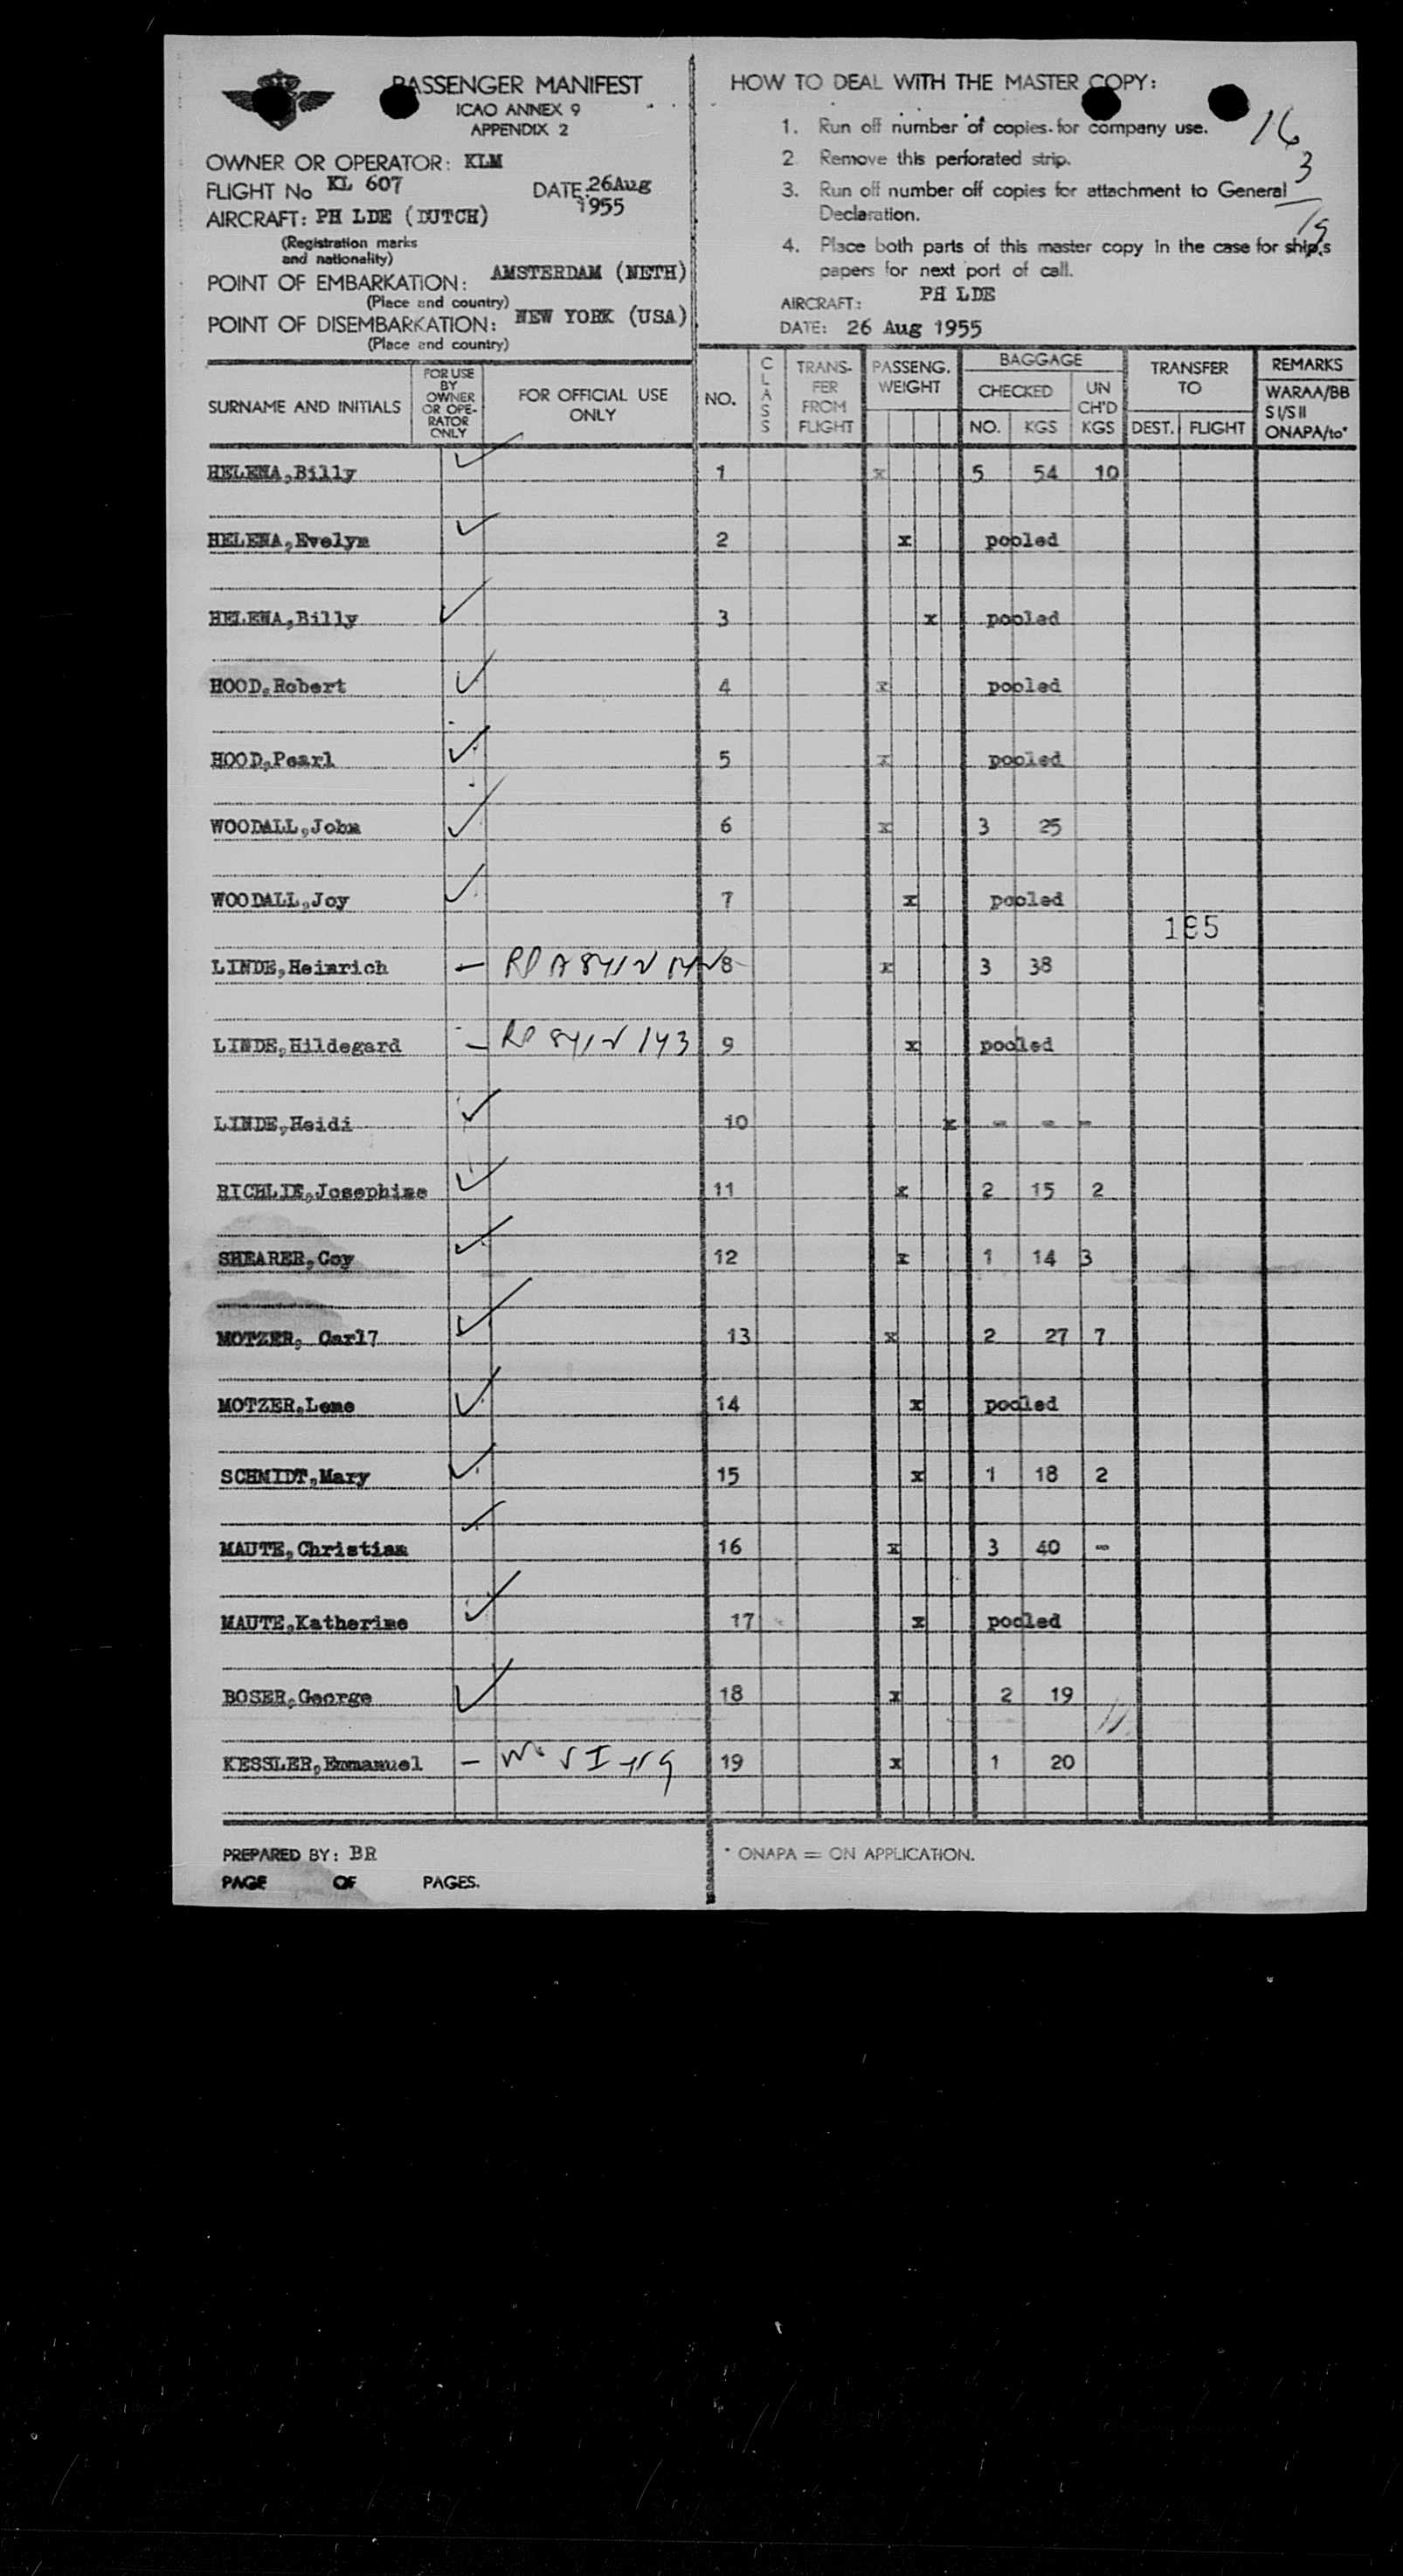 PASSENGER MANIFEST
ICAO ANNEX 9
APPENDIX 2
OWNER OR OPERATOR: KLM
FLIGHT No KL 607 DATE: 26Aug 1955
AIRCRAFT: PH LDE (DUTCH)
(Registration marks
and nationality)
POINT OF EMBARKATION: AMSTERDAM (NETH)
(Place and country)
POINT OF DISEMBARKATION: NEW YORK (USA)
(Place and country)
HOW TO DEAL WITH THE MASTER COPY:
1. Run off number of copies for company use.
2 Remove this perforated strip.
3. Run off number off copies for attachment to General
Declaration.
4. Place both parts of this master copy in the case for ship's
papers for next port of call.
16
3
19
AIRCRAFT: PH LDE
DATE: 26 Aug 1955
SURNAME AND INITIALS FOR USE BY OWNER OR OPE- RATOR ONLY FOR OFFICIAL USE ONLY NO. CLASS TRANS- FER FROM FLIGHT PASSENG. WEIGHT BAGGAGE CHECKED NO. KGS UN CH'D KGS TRANSFER TO DEST. FLIGHT REMARKS WARAA/BB S I/S II ONAPA/to*
HELENA,Billy 1 x 5 54 10
HELENA,Evelyn 2 x pooled
HELENA,Billy 3 x pooled
HOOD,Robert 4 x pooled
HOOD,Pearl 5 x pooled
WOODALL,John 6 x 3 25
WOODALL,Joy 7 x pooled
195
LINDE,Heinrich — 8 x 3 38
LINDE,Hildegard — 9 x pooled
LINDE,Heidi 10 x - - -
RICHLIE,Josephine 11 x 2 15 2
SHEARER,Coy 12 x 1 14 3
MOTZER, Carl7 13 x 2 27 7
MOTZER,Lene 14 x pooled
SCHMIDT,Mary 15 x 1 18 2
MAUTE,Christian 16 x 3 40 -
MAUTE,Katherine 17 x pooled
BOSER,George 18 x 2 19
KESSLER,Emmanuel — 19 x 1 20
PREPARED BY: BR
* ONAPA = ON APPLICATION.
PAGE OF PAGES.